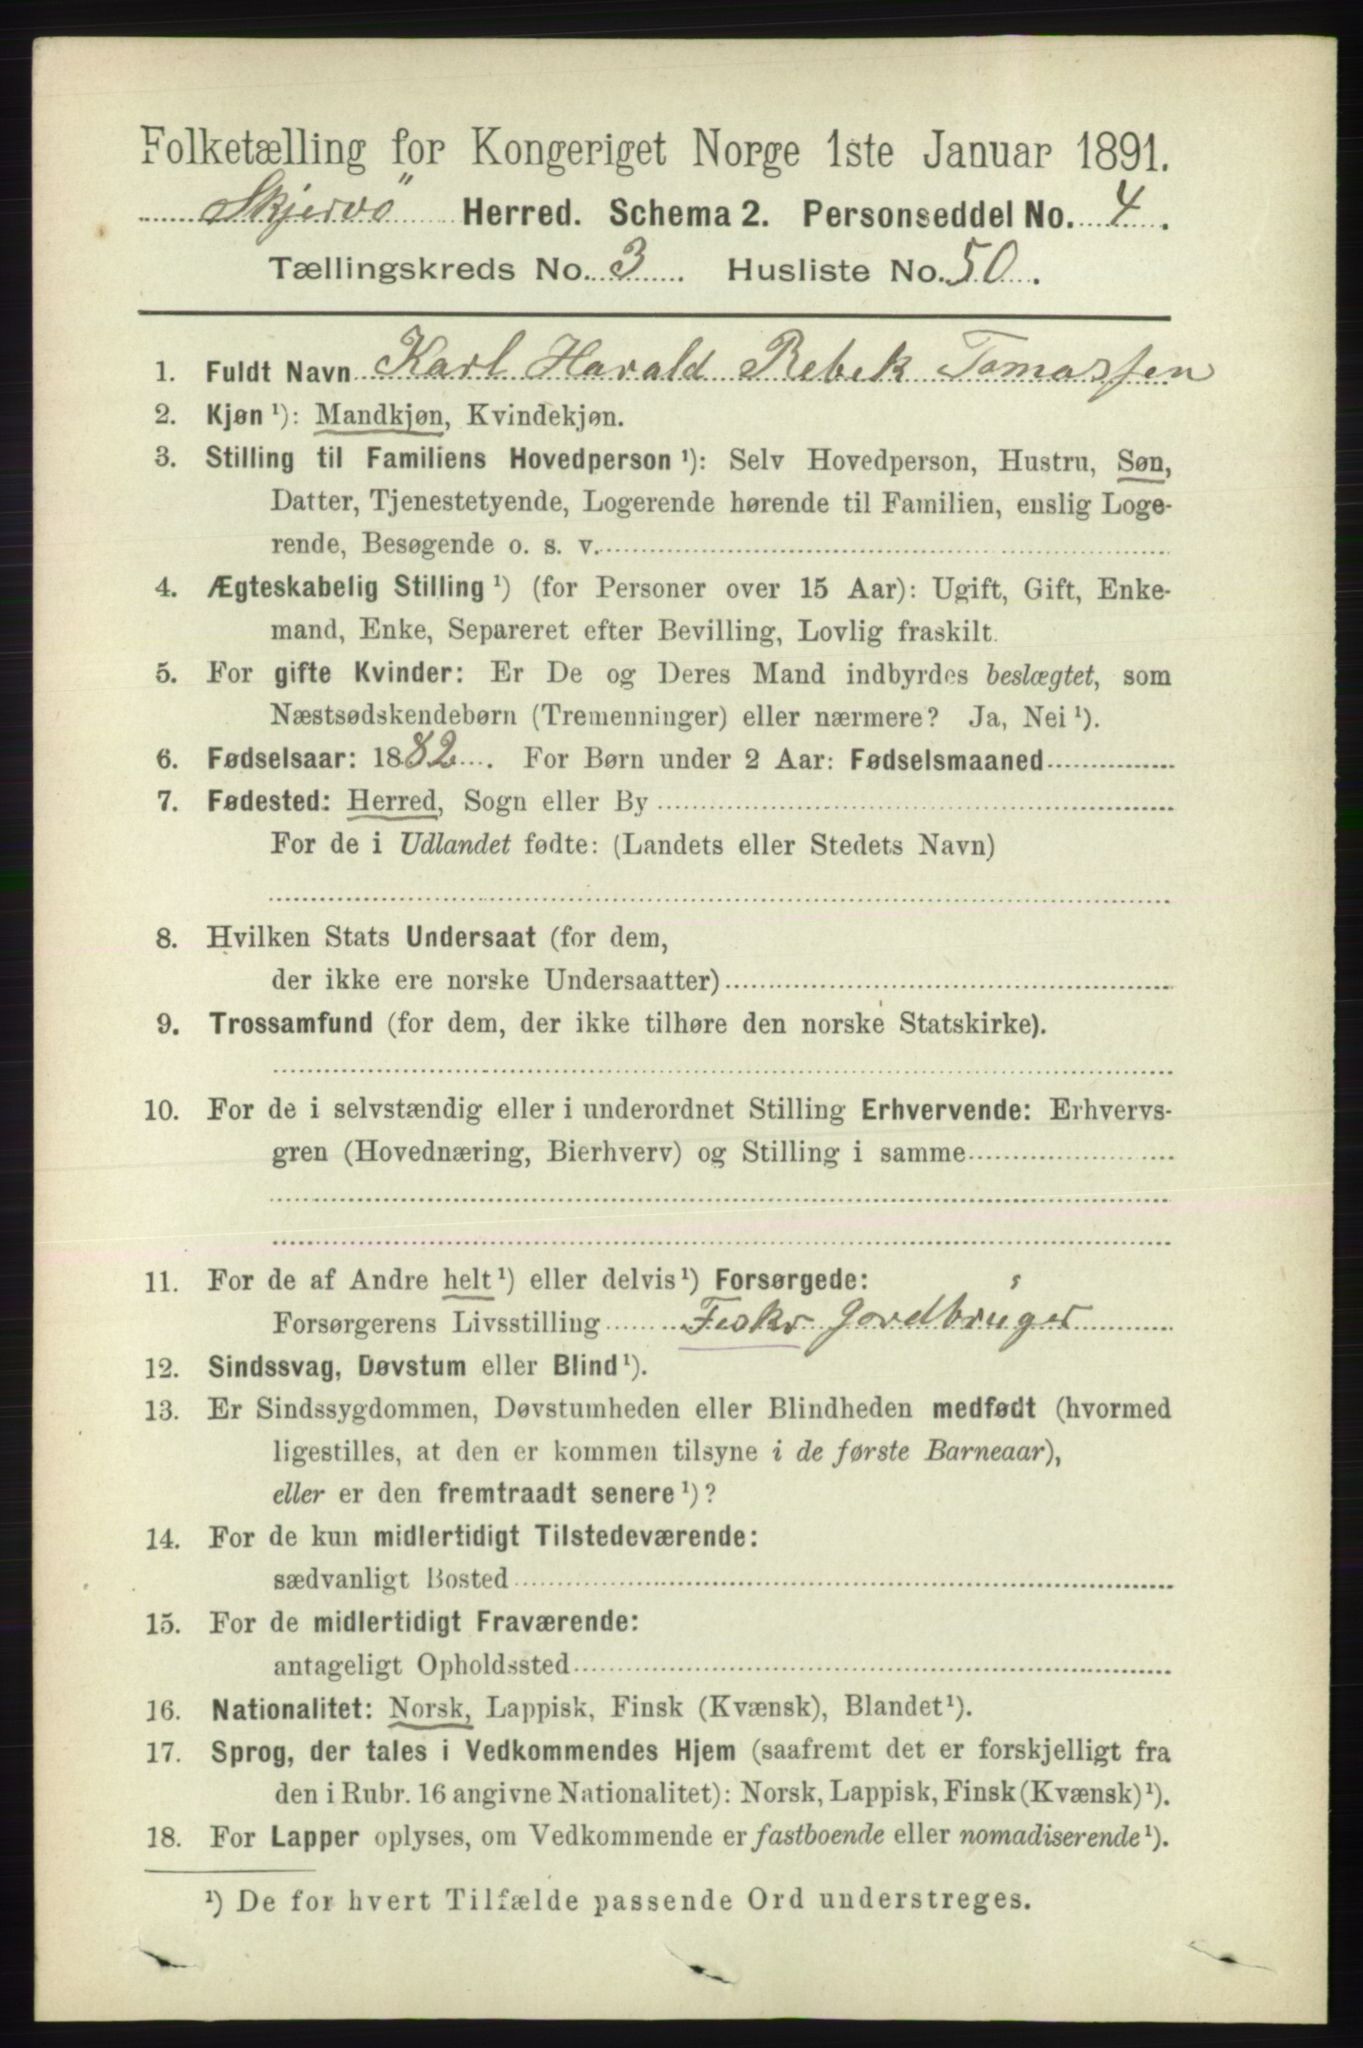 Folketælling for Kongeriget Norge 1ste Januar 1891.
Skjervö Herred. Schema 2. Personseddel No. 4.
Tællingskreds No. 3. Husliste No. 50.
1. Fuldt Navn Karl Harald Rebek Tomassen
2. Kjøn ¹): Mandkjøn, Kvindekjøn.
3. Stilling til Familiens Hovedperson ¹): Selv Hovedperson, Hustru, Søn,
Datter, Tjenestetyende, Logerende hørende til Familien, enslig Loge-
rende, Besøgende o. s. v.
4. Ægteskabelig Stilling ¹) (for Personer over 15 Aar): Ugift, Gift, Enke-
mand, Enke, Separeret efter Bevilling, Lovlig fraskilt.
5. For gifte Kvinder: Er De og Deres Mand indbyrdes beslægtet, som
Næstsødskendebørn (Tremenninger) eller nærmere? Ja, Nei ¹).
6. Fødselsaar: 1882. For Børn under 2 Aar: Fødselsmaaned
7. Fødested: Herred, Sogn eller By
For de i Udlandet fødte: (Landets eller Stedets Navn)
8. Hvilken Stats Undersaat (for dem,
der ikke ere norske Undersaatter)
9. Trossamfund (for dem, der ikke tilhøre den norske Statskirke).
10. For de i selvstændig eller i underordnet Stilling Erhvervende: Erhvervs-
gren (Hovednæring, Bierhverv) og Stilling i samme
11. For de af Andre helt ¹) eller delvis ¹) Forsørgede:
Forsørgerens Livsstilling Fiskr Jordbruger
12. Sindssvag, Døvstum eller Blind ¹).
13. Er Sindssygdommen, Døvstumheden eller Blindheden medfødt (hvormed
ligestilles, at den er kommen tilsyne i de første Barneaar),
eller er den fremtraadt senere ¹)?
14. For de kun midlertidigt Tilstedeværende:
sædvanligt Bosted
15. For de midlertidigt Fraværende:
antageligt Opholdssted
16. Nationalitet: Norsk, Lappisk, Finsk (Kvænsk), Blandet ¹).
17. Sprog, der tales i Vedkommendes Hjem (saafremt det er forskjelligt fra
den i Rubr. 16 angivne Nationalitet): Norsk, Lappisk, Finsk (Kvænsk) ¹).
18. For Lapper oplyses, om Vedkommende er fastboende eller nomadiserende ¹).
¹) De for hvert Tilfælde passende Ord understreges.